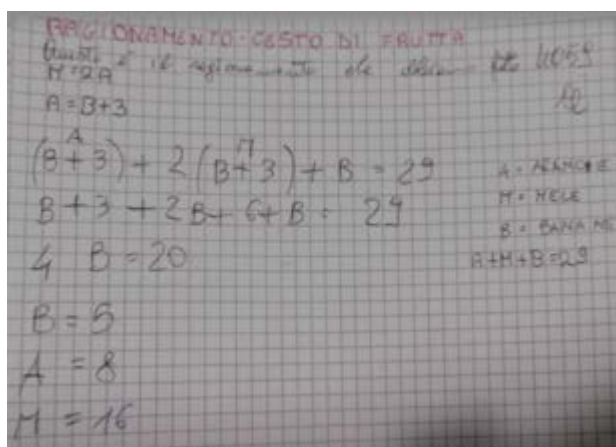 RAGIONAMENTO CESTO DI FRUTTA
Questo è il
M=2A
A=B+3
A M
(B+3)+2(B+3)+B=29
B+3+2B+6+B=29
4 B=20
B=5
A=8
M=16
A=ARANCE
M=MELE
B=BANANE
A+M+B=29